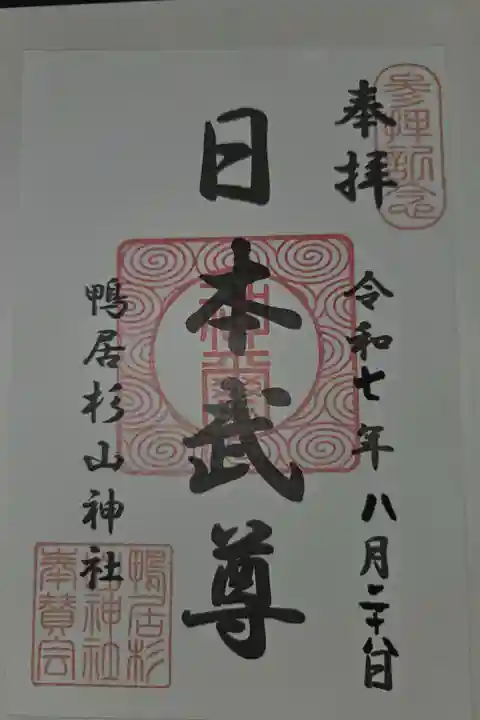 奉拝
令和七年八月二十八日
日本武尊
鴨居杉山神社
鴨居杉
山神社
奉賛会